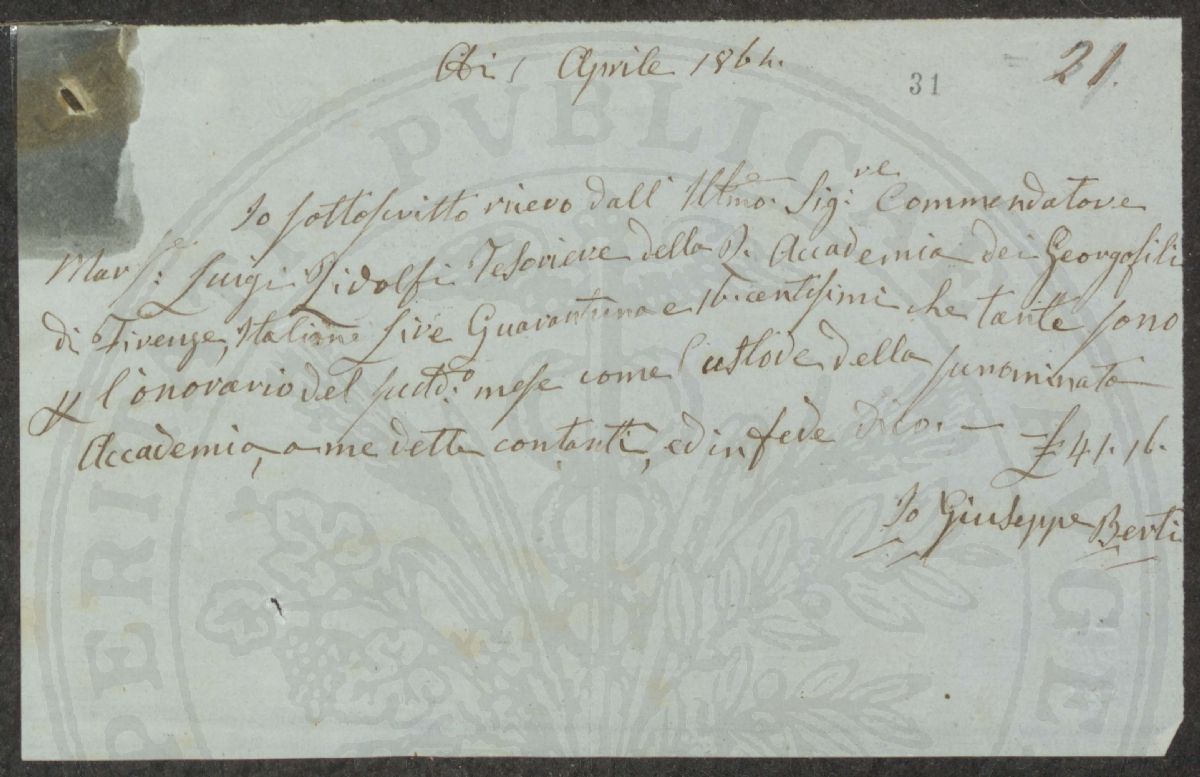 Ai 1 Aprile 1864.
31
21.
Io sottoscritto ricevo dall' Illmo. Sig.re Commendatore
March.e Luigi Ridolfi Tesoriere della R. Accademia dei Georgofili
di Firenze, Italiane Lire Quarantuna e 16. centesimi che tante sono
l'onorario del sudd.o mese come Custode della sunominata
Accademia, a me dette contanti, ed in fede dico. — £ 41. 16.
Io Giuseppe Berti